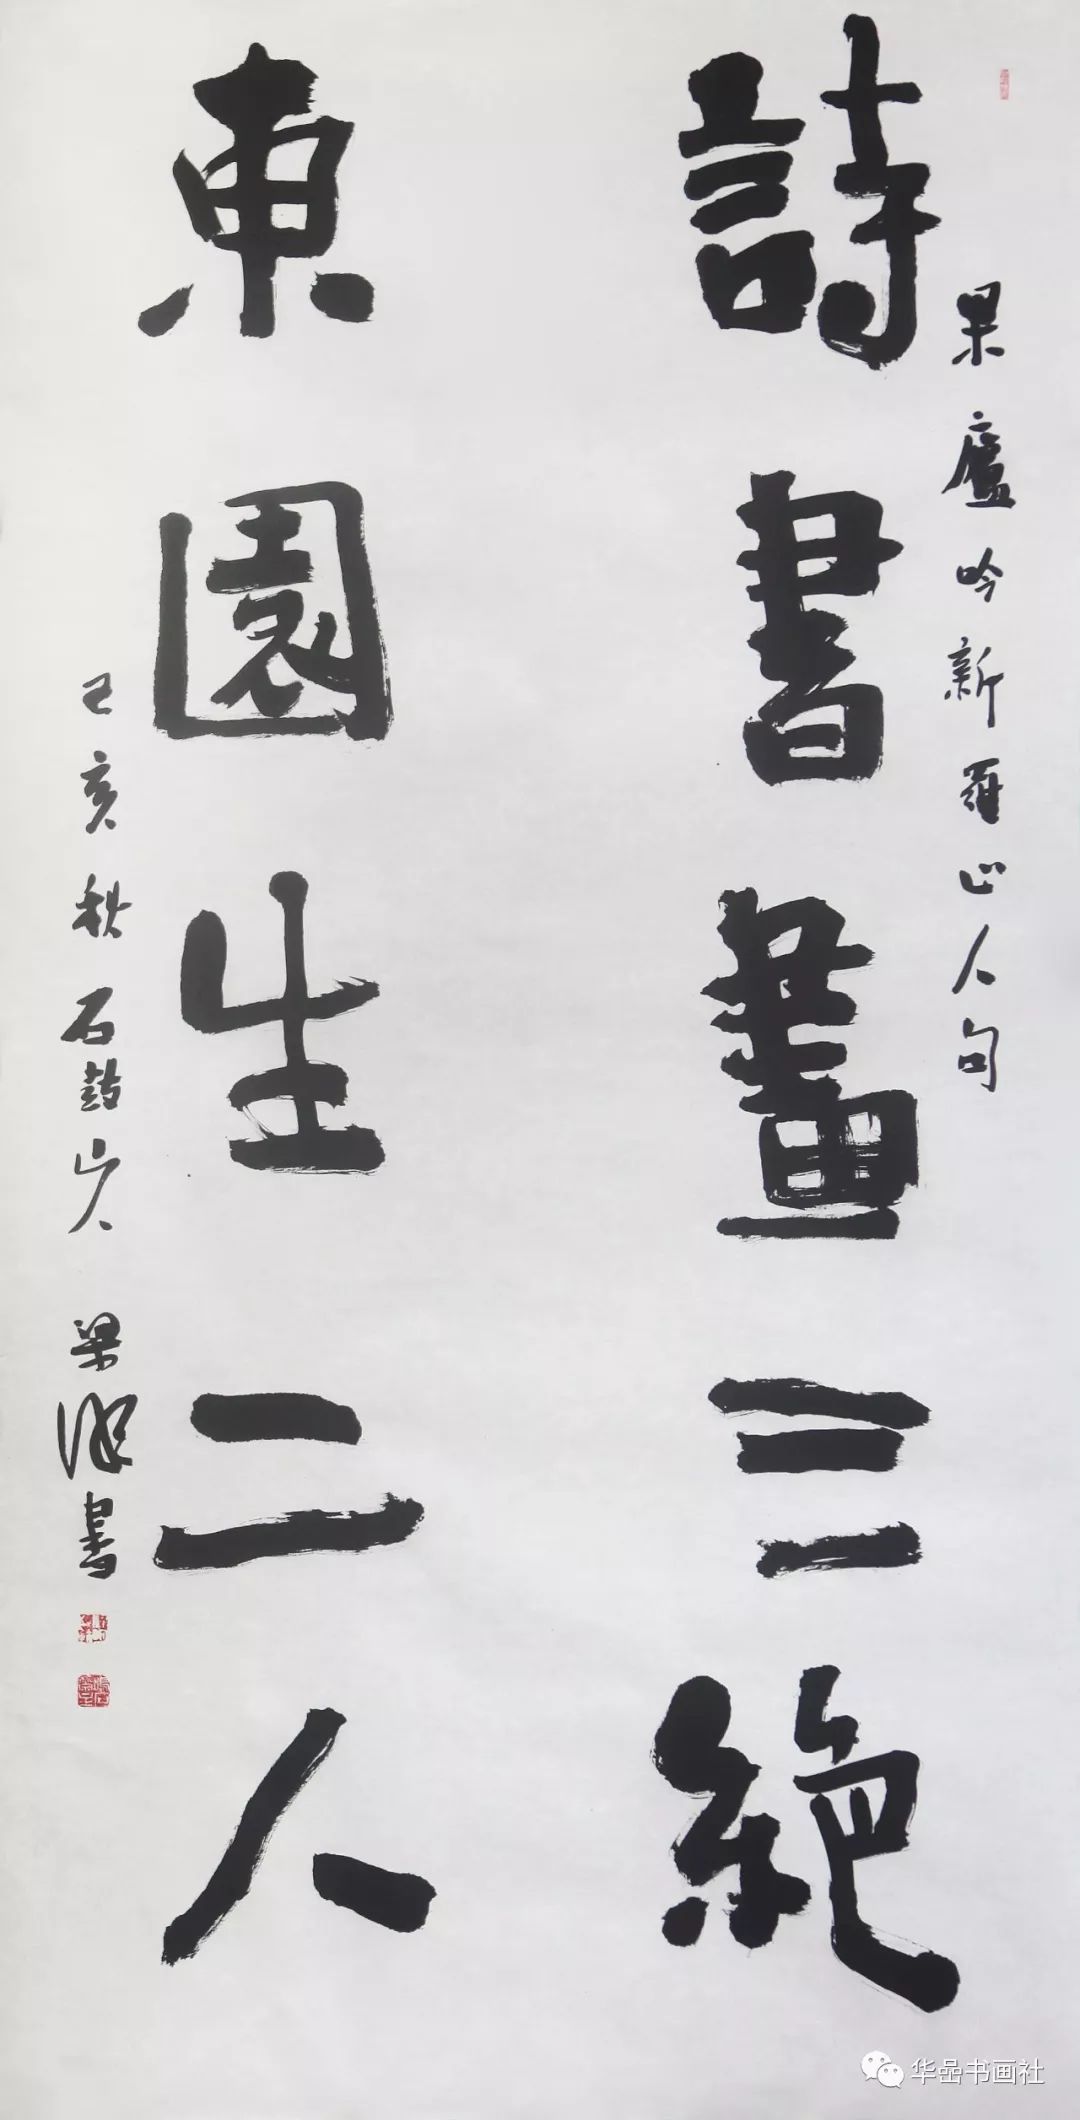 詩書畫三絕
東園生二人
果廬吟新羅山人句
己亥秋石鼓山人梁書
华嵒书画社